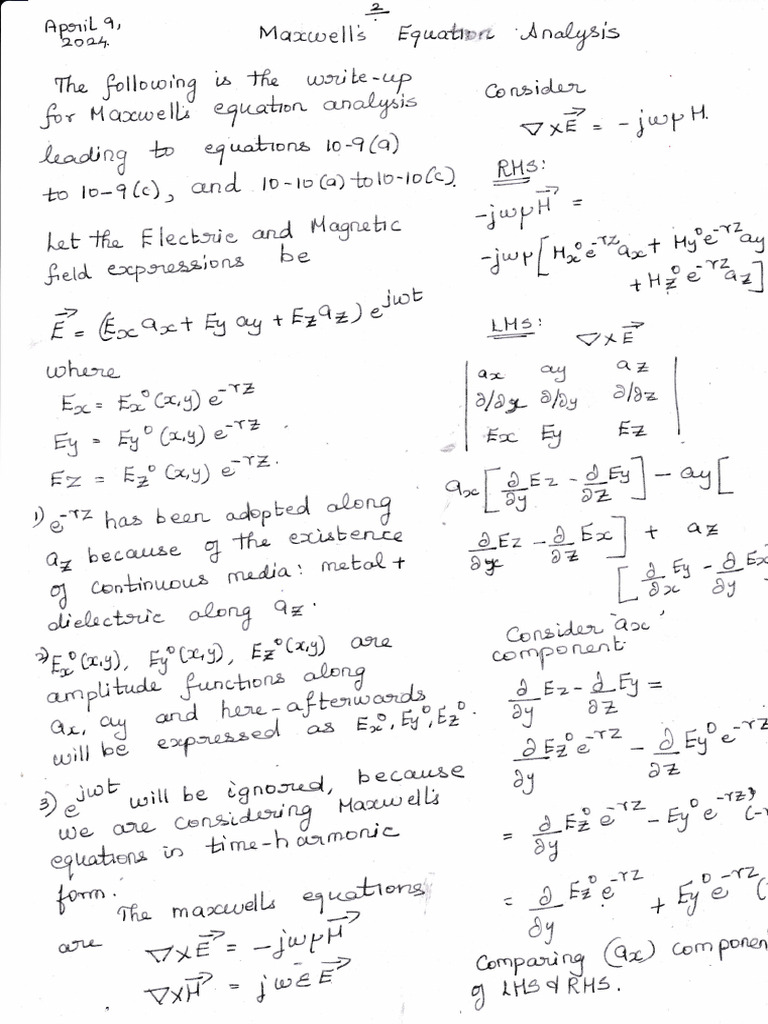 2
April 9,
2024.
Maxwell's Equation Analysis
The following is the write-up
for Maxwell's equation analysis
leading to equations 10-9(a)
to 10-9(c), and 10-10(a) to 10-10(c).
Let the Electric and Magnetic
field expressions be
E⃗ = (Ex ax + Ey ay + Ez az) e^jωt
where
Ex = Ex⁰(x,y) e^-γz
Ey = Ey⁰(x,y) e^-γz
Ez = Ez⁰(x,y) e^-γz.
1) e^-γz has been adopted along
az because of the existence
of continuous media: metal +
dielectric along az.
2) Ex⁰(x,y), Ey⁰(x,y), Ez⁰(x,y) are
amplitude functions along
ax, ay and here-afterwards
will be expressed as Ex⁰, Ey⁰, Ez⁰.
3) e^jωt will be ignored, because
we are considering Maxwell's
equations in time-harmonic
form.
The maxwells equations
are ∇×E⃗ = -jωμH⃗
∇×H⃗ = jωε E⃗
Consider
∇×E⃗ = -jωμH.
RHS:
-jωμH⃗ =
-jωμ[Hx⁰e^-γz ax + Hy⁰e^-γz ay
+ Hz⁰ e^-γz az]
LHS: ∇×E⃗
| ax ay az |
| ∂/∂x ∂/∂y ∂/∂z |
| Ex Ey Ez |
ax[∂/∂y Ez - ∂/∂z Ey] - ay[
∂/∂x Ez - ∂/∂z Ex] + az
[∂/∂x Ey - ∂/∂y Ex
Consider 'ax'
component.
∂/∂y Ez - ∂/∂z Ey =
∂/∂y Ez⁰e^-γz - ∂/∂z Ey⁰e^-γz
= ∂/∂y Ez⁰ e^-γz - Ey⁰ e^-γz (-γ
= ∂/∂y Ez⁰ e^-γz + Ey⁰ e^-γz (
Comparing (ax) componen
of LHS & RHS.